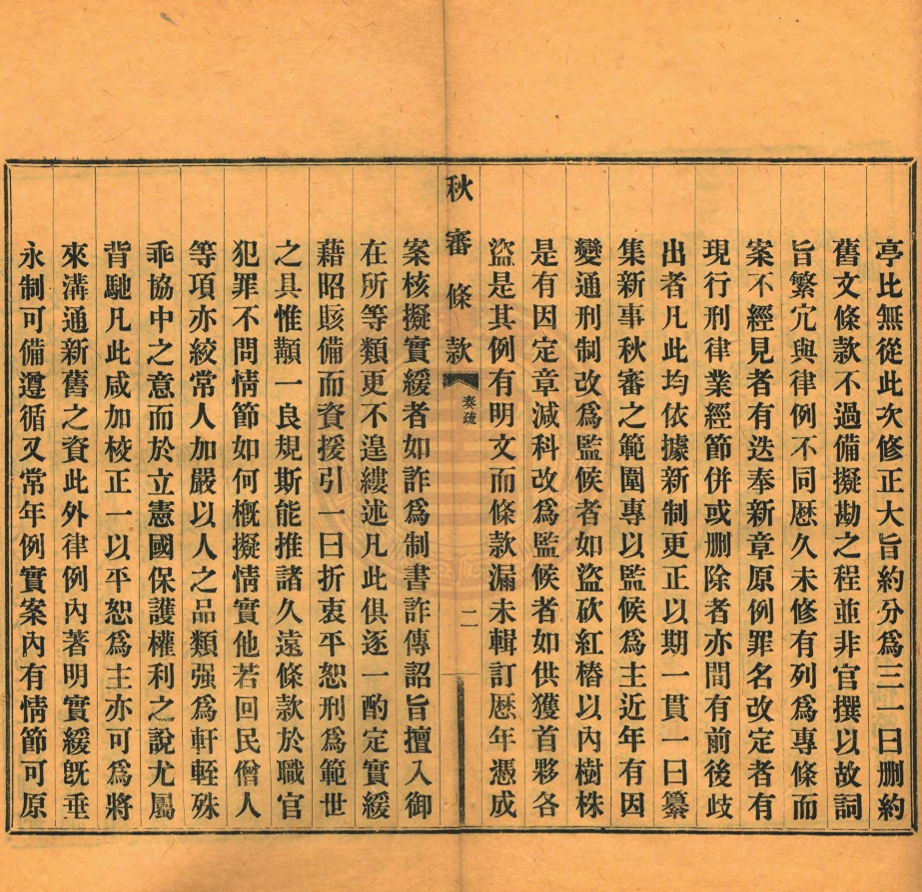 亭比無從此次修正大旨約分為三一曰删約
舊文條款不過備擬勘之程並非官撰以故詞
旨繁宂與律例不同厯久未修有列爲專條而
案不經見者有迭奉新章原例罪名改定者有
現行刑律業經節併或删除者亦間有前後歧
出者凡此均依據新制更正以期一貫一曰纂
集新事秋審之範圍專以監候爲主近年有因
變通刑制改爲監候者如盜砍紅樁以內樹株
是有因定章減科改爲監候者如供獲首夥各
盜是其例有明文而條款漏未輯訂厯年憑成
秋審條款 奏疏 二
案核擬實緩者如詐爲制書詐傳詔旨擅入御
在所等類更不遑縷述凡此俱逐一酌定實緩
藉昭賅備而資援引一曰折衷平恕刑爲範世
之具惟顜一良規斯能推諸久遠條款於職官
犯罪不問情節如何槪擬情實他若回民僧人
等項亦絞常人加嚴以人之品類强爲軒輊殊
乖協中之意而於立憲國保護權利之說尤屬
背馳凡此咸加校正一以平恕爲主亦可爲將
來溝通新舊之資此外律例內著明實緩旣垂
永制可備遵循又常年例實案內有情節可原